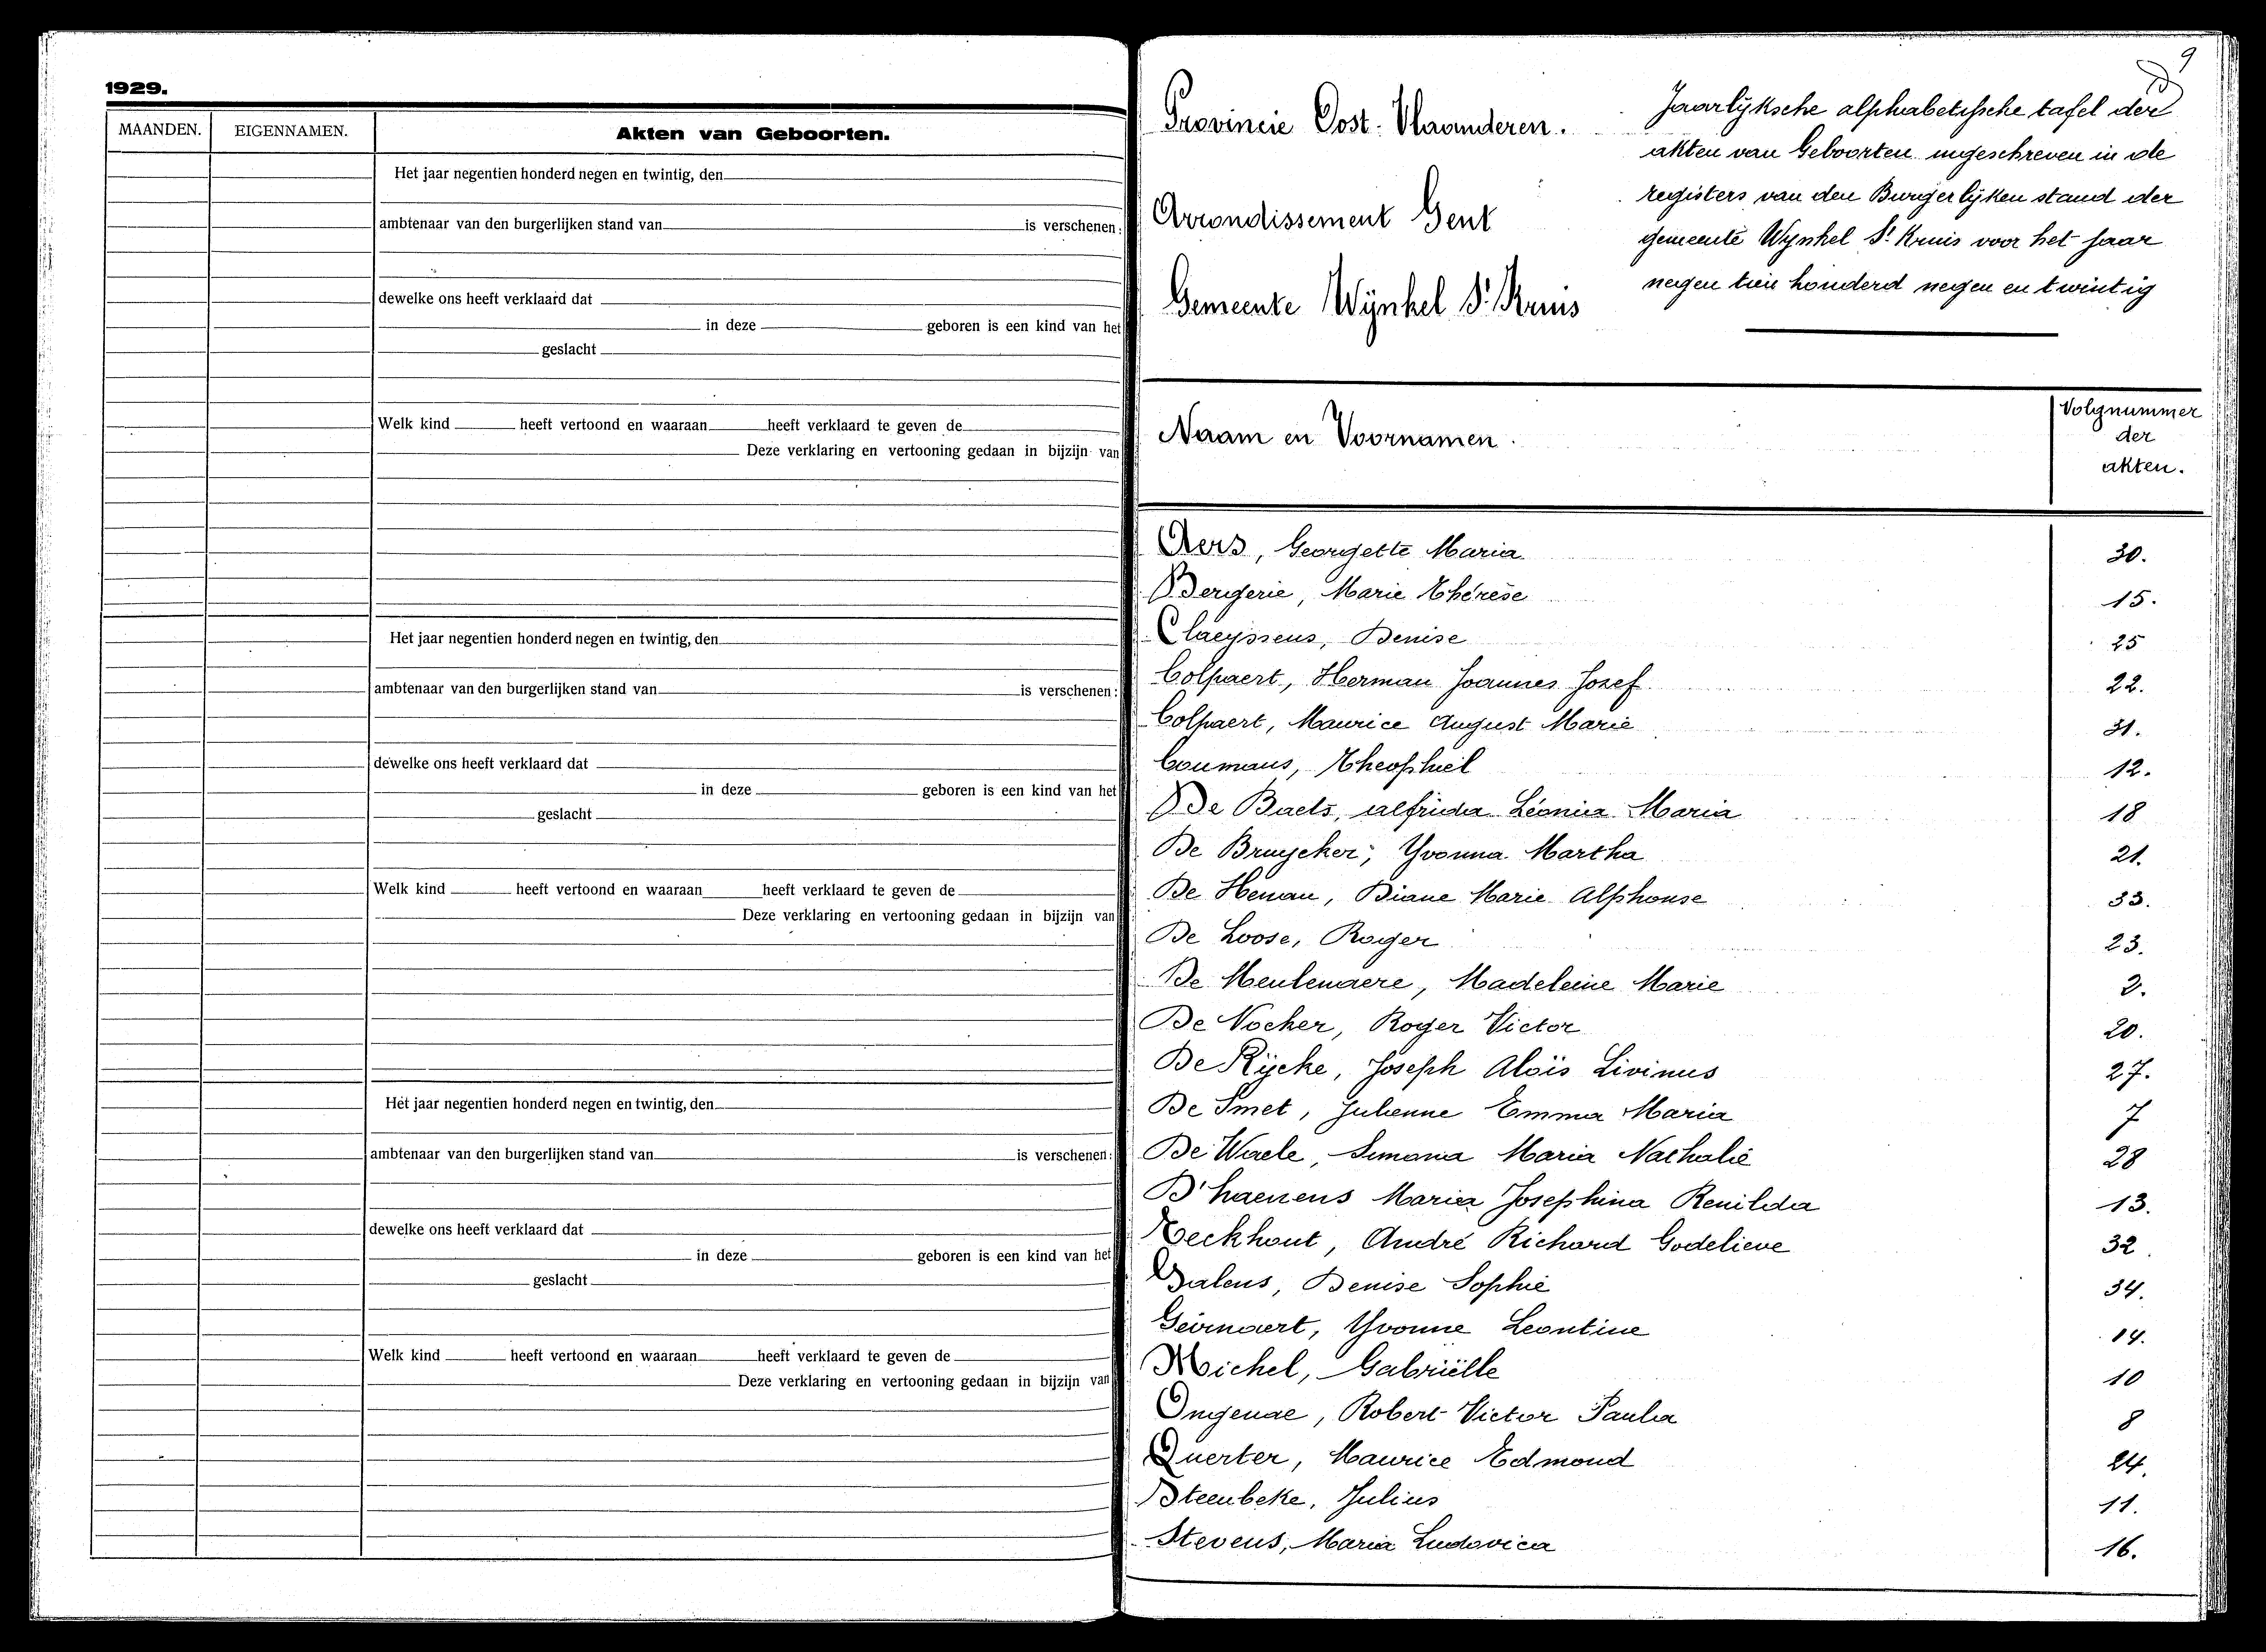 1929.
MAANDEN. EIGENNAMEN. Akten van Geboorten.
Het jaar negentien honderd negen en twintig, den
ambtenaar van den burgerlijken stand van is verschenen:
dewelke ons heeft verklaard dat
in deze geboren is een kind van het
geslacht
Welk kind heeft vertoond en waaraan heeft verklaard te geven de
Deze verklaring en vertooning gedaan in bijzijn van
Het jaar negentien honderd negen en twintig, den
ambtenaar van den burgerlijken stand van is verschenen:
dewelke ons heeft verklaard dat
in deze geboren is een kind van het
geslacht
Welk kind heeft vertoond en waaraan heeft verklaard te geven de
Deze verklaring en vertooning gedaan in bijzijn van
Het jaar negentien honderd negen en twintig, den
ambtenaar van den burgerlijken stand van is verschenen:
dewelke ons heeft verklaard dat
in deze geboren is een kind van het
geslacht
Welk kind heeft vertoond en waaraan heeft verklaard te geven de
Deze verklaring en vertooning gedaan in bijzijn van
9
Provincie Oost-Vlaanderen.
Arrondissement Gent
Gemeente Wynkel St Kruis
Jaarlyksche alphabetische tafel der
akten van Geboorten ingeschreven in de
registers van den Burgerlyken stand der
gemeente Wynkel St Kruis voor het jaar
negen tien honderd negen en twintig
Naam en Voornamen. Volgnummer
der
akten.
Aers, Georgette Maria 30.
Bergerie, Marie Thérèse 15.
Claeyssens, Denise 25
Colpaert, Herman Joannes Josef 22.
Colpaert, Maurice August Marie 31.
Coumans, Theophiel 12.
De Baets, alfrida Léonia Maria 18
De Bruycker, Yvonna Martha 21.
De Henau, Diane Marie Alphonse 33.
De Loose, Roger 23.
De Meulenaere, Madeleine Marie 2.
De Nocker, Roger Victor 20.
De Rÿcke, Joseph Aloïs Livinus 27.
De Smet, Julienne Emma Maria 7
De Waele, Simona Maria Nathalie 28
D'haenens Maria Josephina Renilda 13.
Eeckhout, André Richard Godelieve 32.
Galens, Denise Sophie 34.
Geirnaert, Yvonne Leontine 14.
Michel, Gabriëlle 10
Ongenae, Robert Victor Paula 8
Querter, Maurice Edmond 24.
Steenbeke, Julius 11.
Stevens, Maria Ludovica 16.